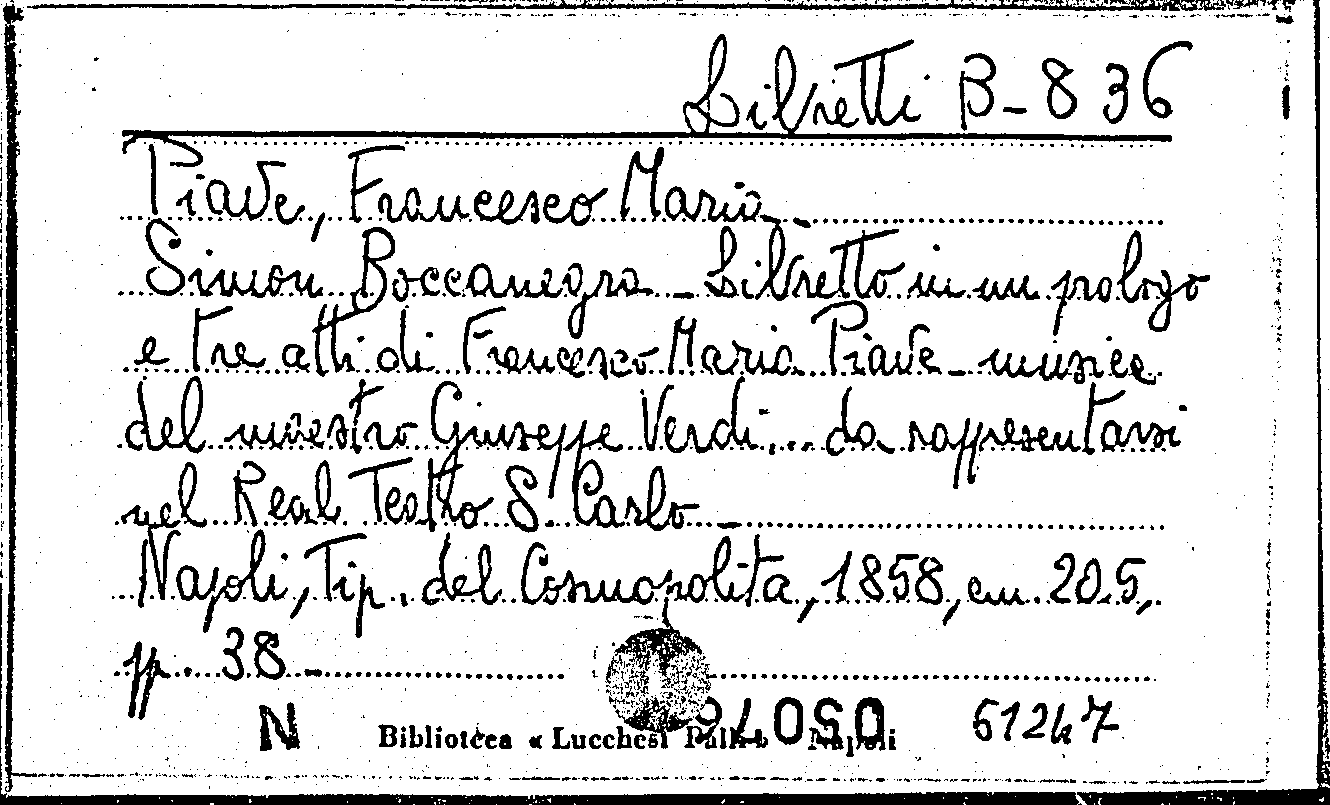 Libretti B-836
Piave, Francesco Maria_
Simon Boccanegra _ Libretto in un prologo
e tre atti di Francesco Maria Piave _ musica
del maestro Giuseppe Verdi... da rappresentarsi
nel Real Teatro S. Carlo _
Napoli, Tip. del Cosmopolita, 1858, cm. 20.5,
pp. 38 _
N
Biblioteca « Lucchesi Palli » Napoli
61247